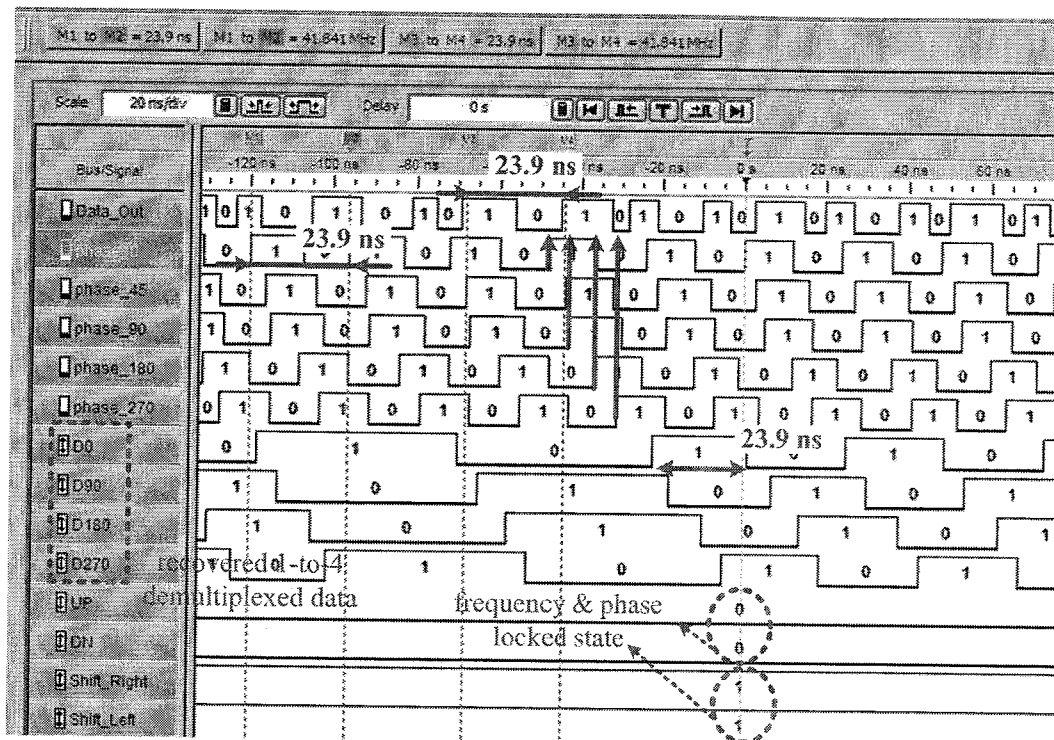 M1 to M2 = 23.9 ns M1 to M2 = 41.841 MHz M3 to M4 = 23.9 ns M3 to M4 = 41.841 MHz
Scale 20 ns/div Delay 0 s
Bus/Signal -120 ns -100 ns -80 ns 23.9 ns ns -20 ns 0 s 20 ns 40 ns 60 ns
Data_Out 1 0 1 0 1 0 1 0 1 0 1 0 1 0 1 0 1 0 1 0 1 0 1
0 23.9 ns 0 1 0 1 0 1 0 1 0 1 0
phase_45 1 0 1 0 1 0 1 0 1 0 1 0 1 0 1 0 1 0
phase_90 1 0 1 0 1 0 1 0 0 1 0 1 0 1 0 1
phase_180 1 0 1 0 1 0 1 0 1 0 1 0 1 0 1 0
phase_270 0 1 0 1 0 1 0 1 0 1 0 1 0 1 0 1 0 1
D0 0 1 0 1 23.9 ns 1 0
D90 1 0 1 0 1 0 1
D180 1 0 1 0 1 0 1
D270 1 0 1 0 1 0 1
recovered 1-to-4
demultiplexed data
UP 0
frequency & phase
locked state
DN 0
Shift_Right 1
Shift_Left 1